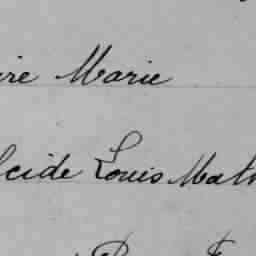 ire Marie
lcide Louis Math